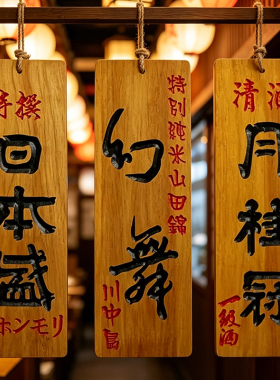 特撰
日本盛
ホンモリ
特別純米山田錦
幻舞
川中島
清酒
月桂冠
一級酒